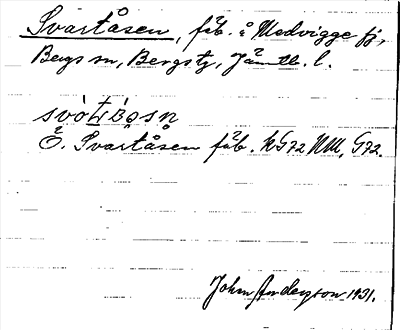 Svartåsen, fäb. å Medvigge fj,
Bergs sn, Bergs tg, Jämtl. l.
svòtẁåsn
Ö. Svartåsen fäb. kG72 NM, G72.
John Anderson 1931.